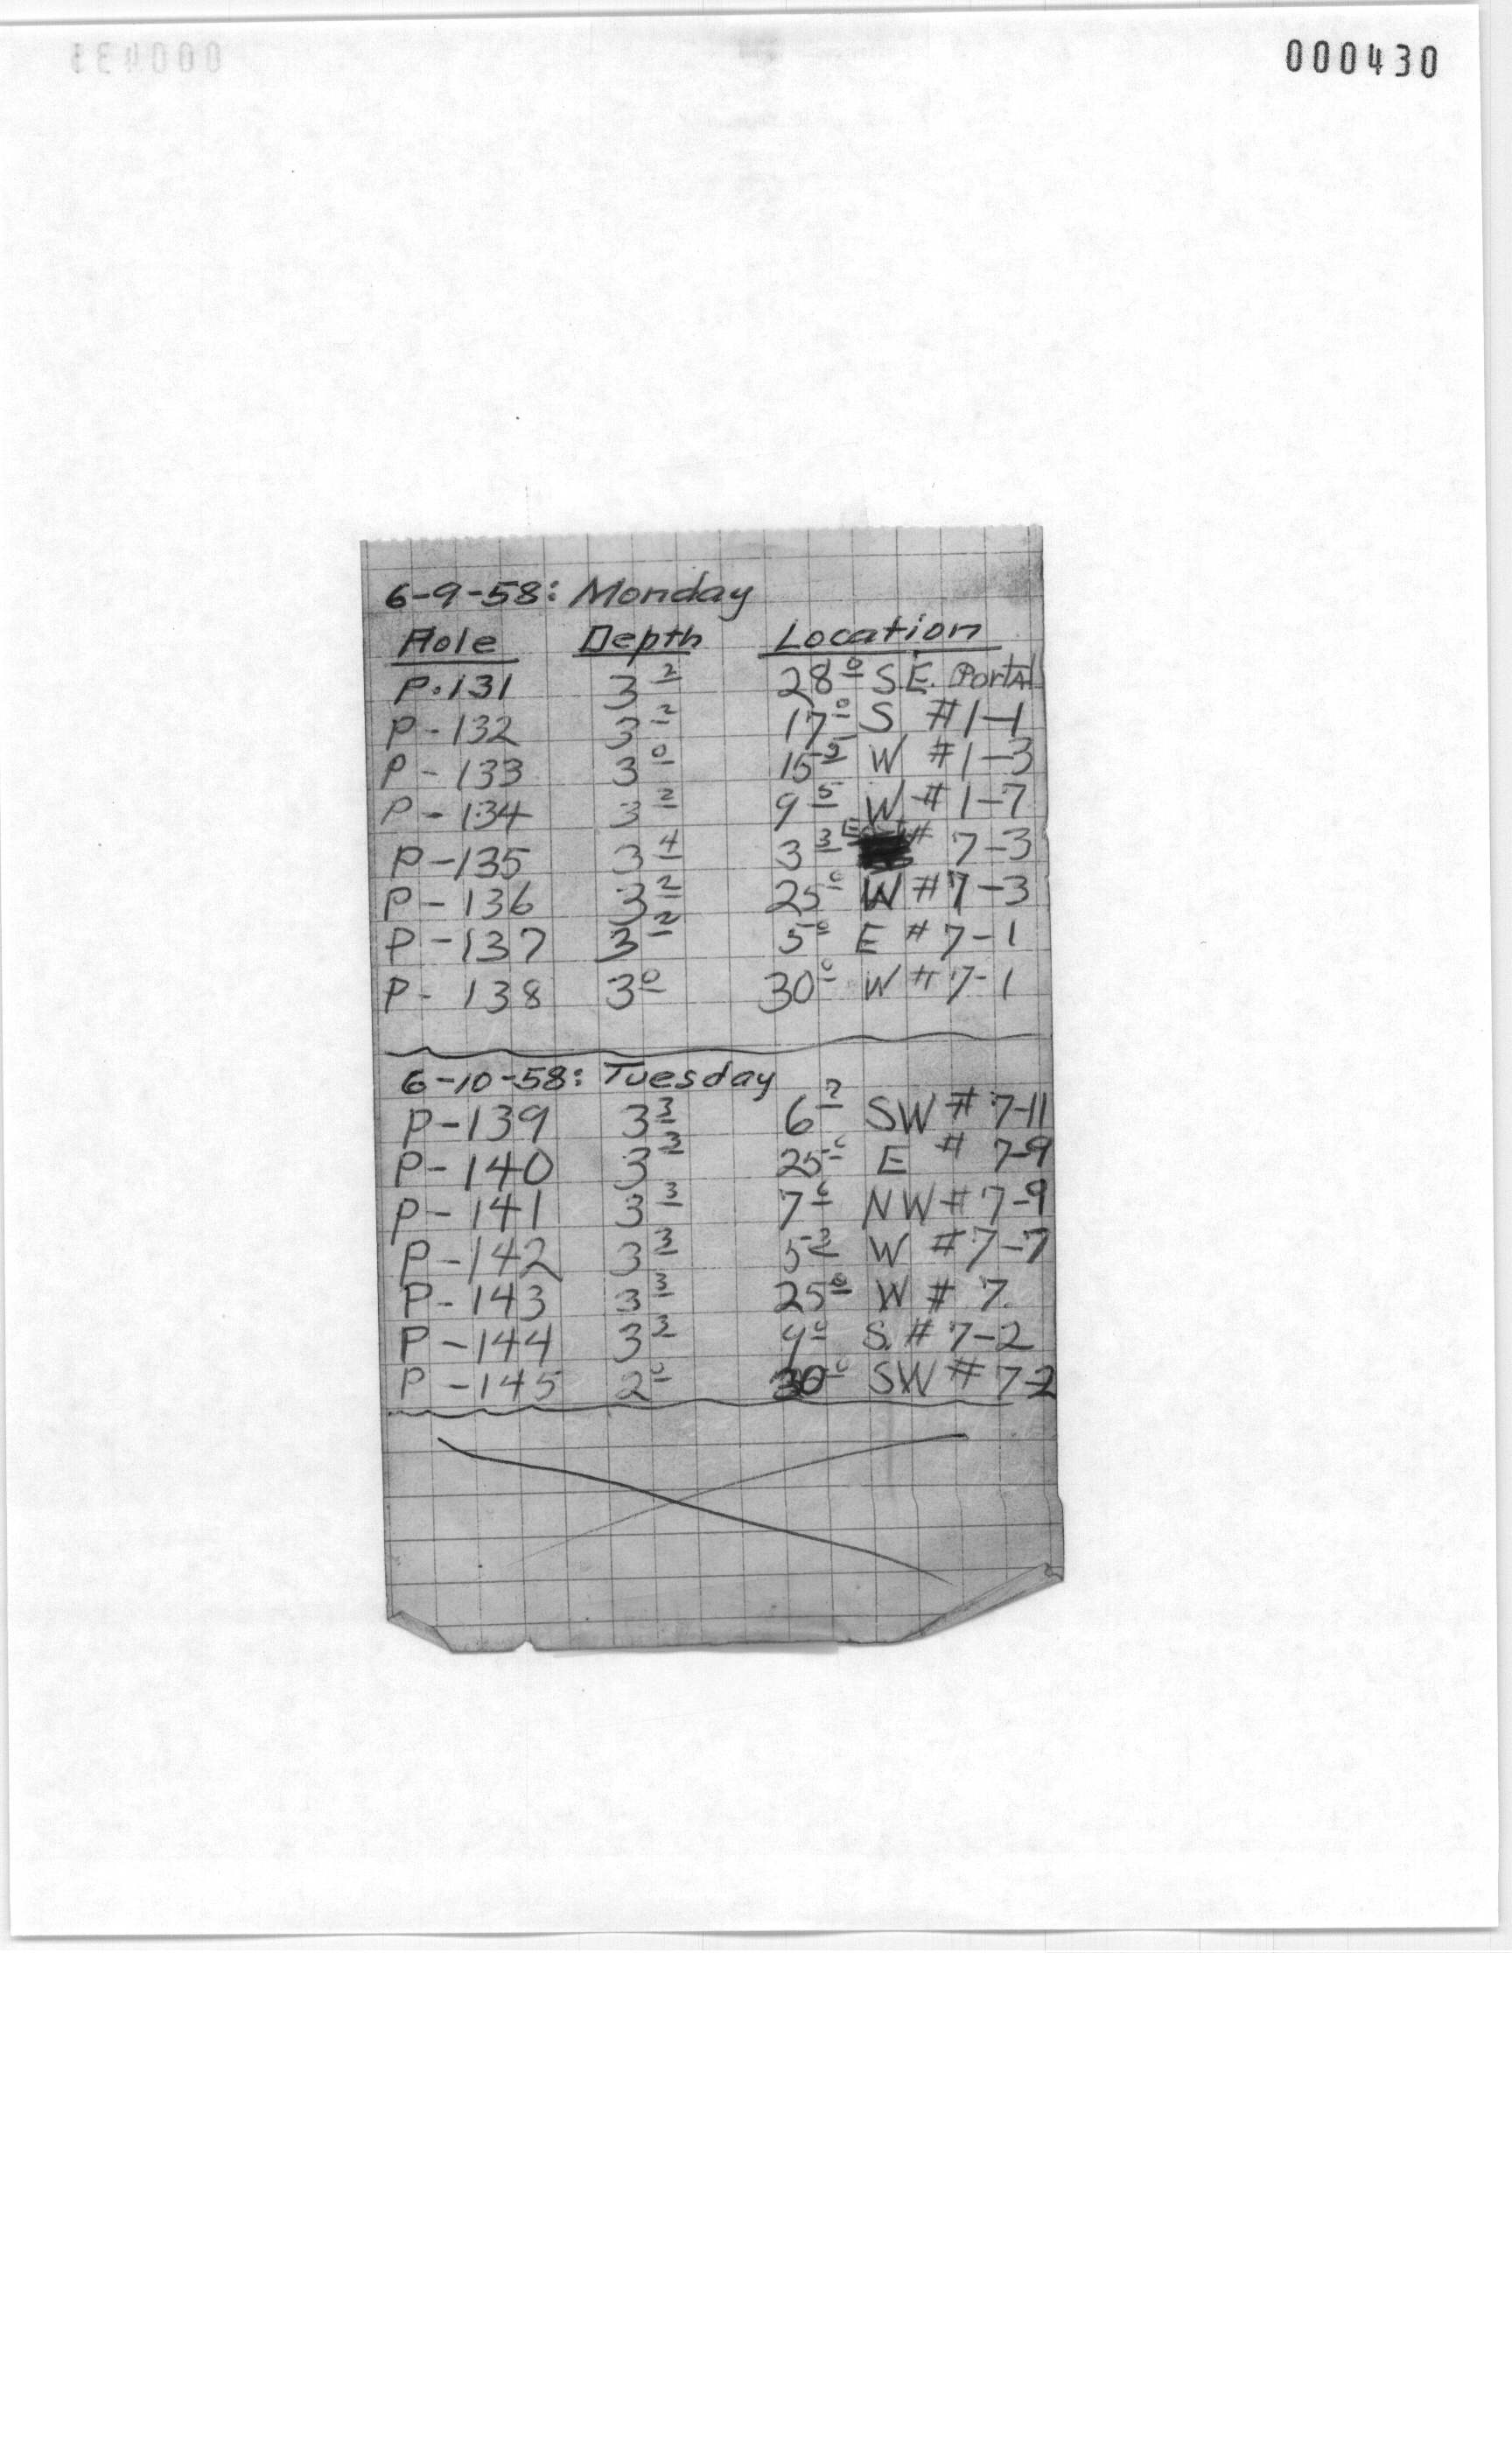 000430
6-9-58: Monday
Hole Depth Location
P-131 3² 28⁰ S.E. Portal
P-132 3² 17⁰ S #1-1
P-133 3⁰ 15⁵ W #1-3
P-134 3² 9⁵ W #1-7
P-135 3⁴ 3³ # 7-3
P-136 3² 25⁰ W #7-3
P-137 3² 5⁰ E #7-1
P-138 3⁰ 30⁰ W #7-1
6-10-58: Tuesday
P-139 3³ 6 SW # 7-11
P-140 3³ 25⁰ E # 7-9
P-141 3³ 7⁰ NW # 7-9
P-142 3³ 5 W #7-7
P-143 3³ 25⁰ W # 7
P-144 3³ S. # 7-2
P-145 2⁰ 30⁰ SW # 7-2